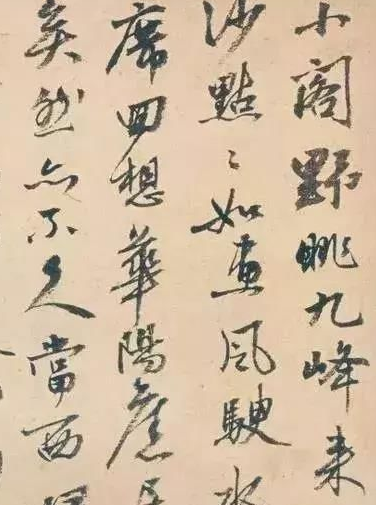 小閣野眺九峰来
沙點〻如畫風駛水
席回想華陽舊
矣然亦不久當西